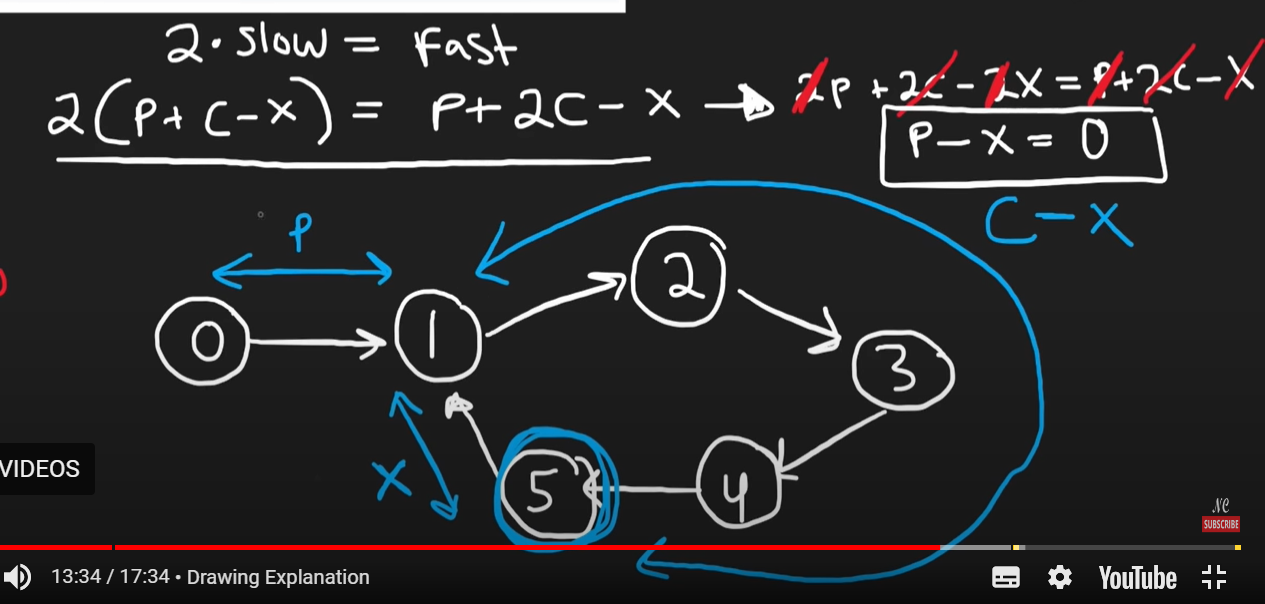 2·slow = Fast
2(P+C-X) = P+2C-X → 2P+2C-2X=P+2C-X
P-X=0
C-X
P
0 1 2 3
X 5 4
VIDEOS
NC
SUBSCRIBE
13:34 / 17:34 • Drawing Explanation YouTube